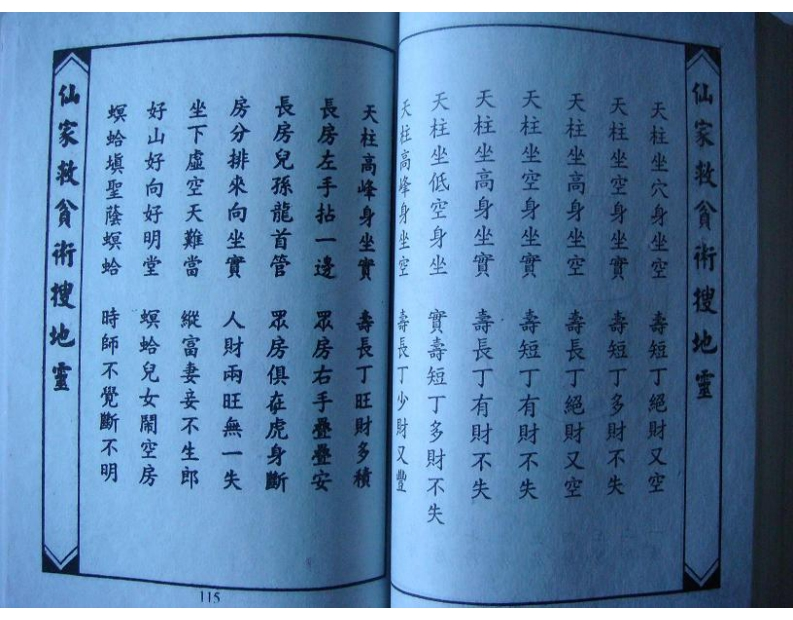 仙家救貧術搜地靈
天柱坐穴身坐空　壽短丁絕財又空
天柱坐空身坐實　壽短丁多財不失
天柱坐高身坐空　壽長丁絕財又空
天柱坐空身坐實　壽短丁有財不失
天柱坐高身坐實　壽長丁有財不失
天柱坐低空身坐　實壽短丁多財不失
天柱高峰身坐空　壽長丁少財又豐
天柱高峰身坐實　壽長丁旺財多積
長房左手拈一邊　眾房右手疊疊安
長房兒孫龍首管　眾房俱在虎身斷
房分排來向坐實　人財兩旺無一失
坐下虛空天難當　縱富妻妾不生郎
好山好向好明堂　螟蛤兒女鬧空房
螟蛤塡聖蔭螟蛤　時師不覺斷不明
仙家救貧術搜地靈
115